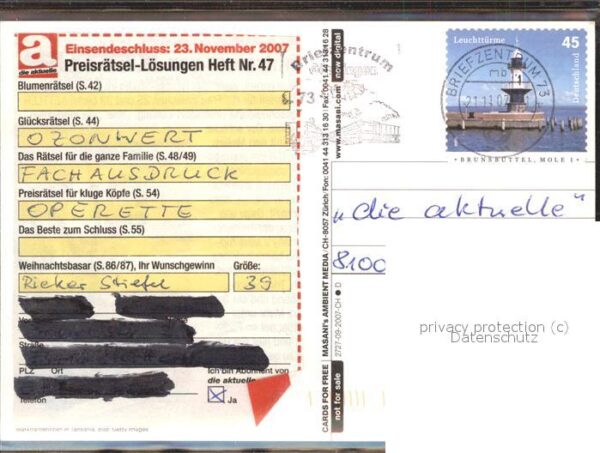 a
die aktuelle
Einsendeschluss: 23. November 2007
Preisrätsel-Lösungen Heft Nr. 47
Blumenrätsel (S.42)
Glücksrätsel (S. 44)
OZONWERT
Das Rätsel für die ganze Familie (S. 48/49)
FACHAUSDRUCK
Preisrätsel für kluge Köpfe (S. 54)
OPERETTE
Das Beste zum Schluss (S.55)
Weihnachtsbasar (S.86/87), Ihr Wunschgewinn Größe:
Rieker Stiefel 39
PLZ Ort
Ich bin Abonnent von
die aktuelle
Telefon
Ja
CARDS FOR FREE | MASANI's AMBIENT MEDIA / CH-8057 Zürich / Fon: 0041 44 313 16 30 | Fax: 0041 44 313 16 28
www.masani.com now digital
not for sale 2727-09-2007-CH D
Briefzentrum
73
Leuchttürme 45
Deutschland
BRIEFZENTRUM 73
mb
21.11.07
BRUNSBÜTTEL, MOLE 1
„die aktuelle"
8100
privacy protection (c)
Datenschutz